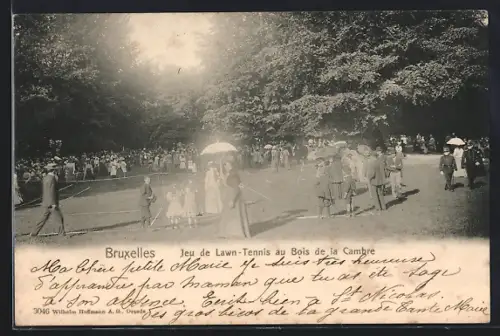 Bruxelles Jeu de Lawn-Tennis au Bois de la Cambre
Ma chère petite Marie Je suis très heureuse
d'apprendre par maman que tu as été sage
à son absence. Ecris bien à St Nicolas.
Des gros bisous de la grande Tante Marie
3046 Wilhelm Hoffmann A. G., Dresde.